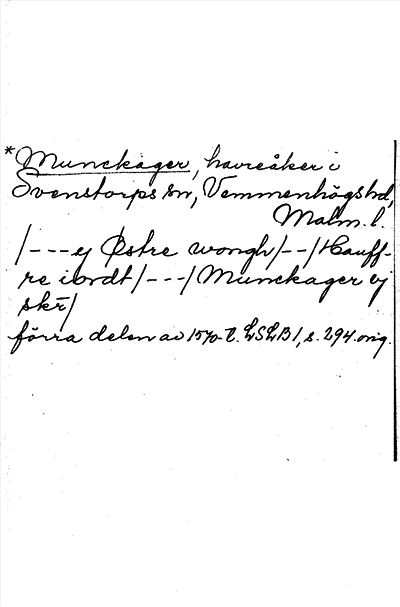 *Munckager, havreåker i
Svenstorps sn, Vemmenhögs hd,
Malm. l.
/---ej Østre wongh/--/Hauff-
re iordt/---/Munckager ej
skr/
förra delen av 1570-t. LSLB1, s. 294. orig.